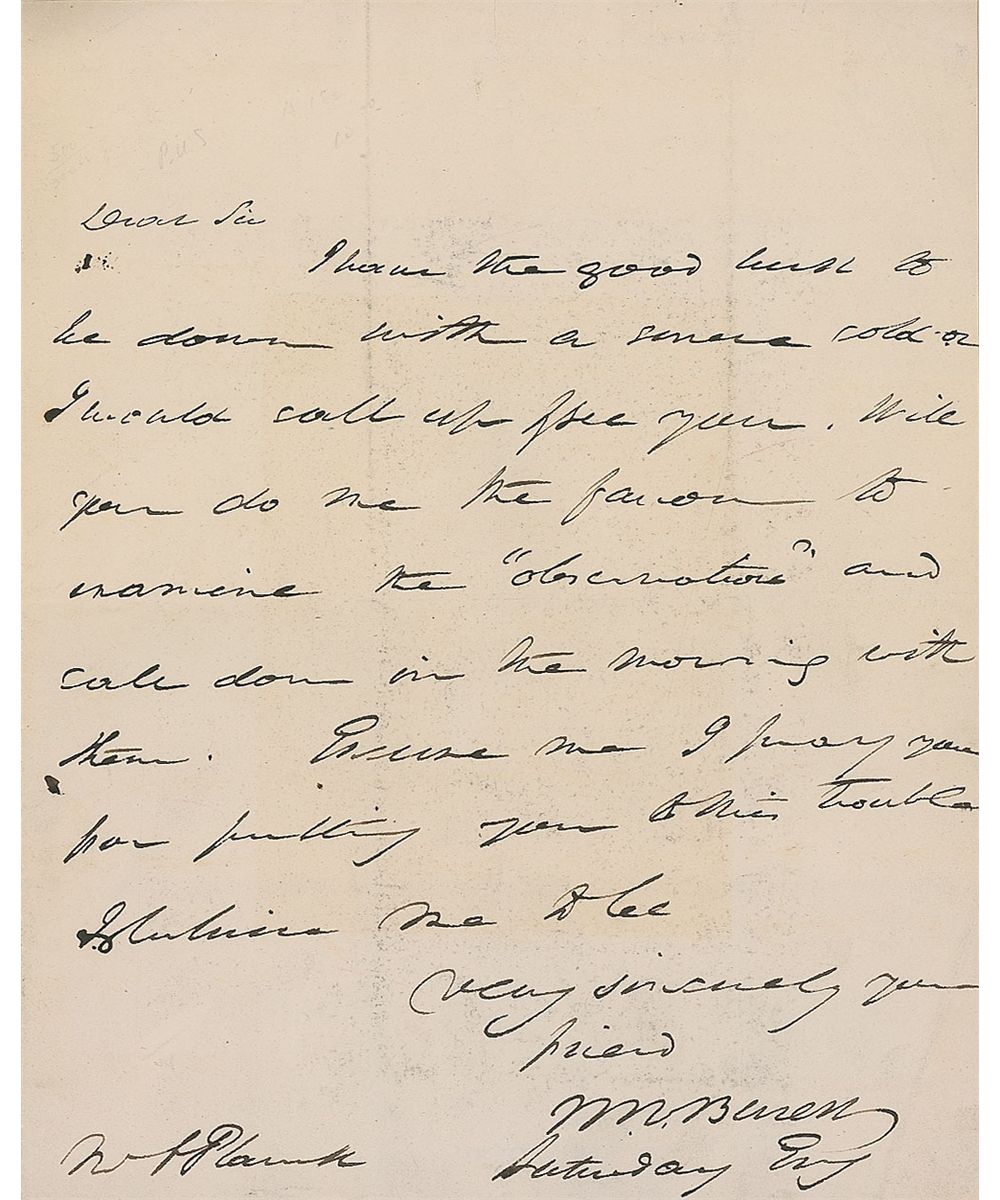 Dear Sir
I have the good luck to
be down with a severe cold - or
I would call up & see you. Will
you do me the favour to
examine the "observations" and
call down in the morning with
them. Excuse me I pray you
for putting you to this trouble
& believe me to be
very sincerely your
friend
Saturday Evg